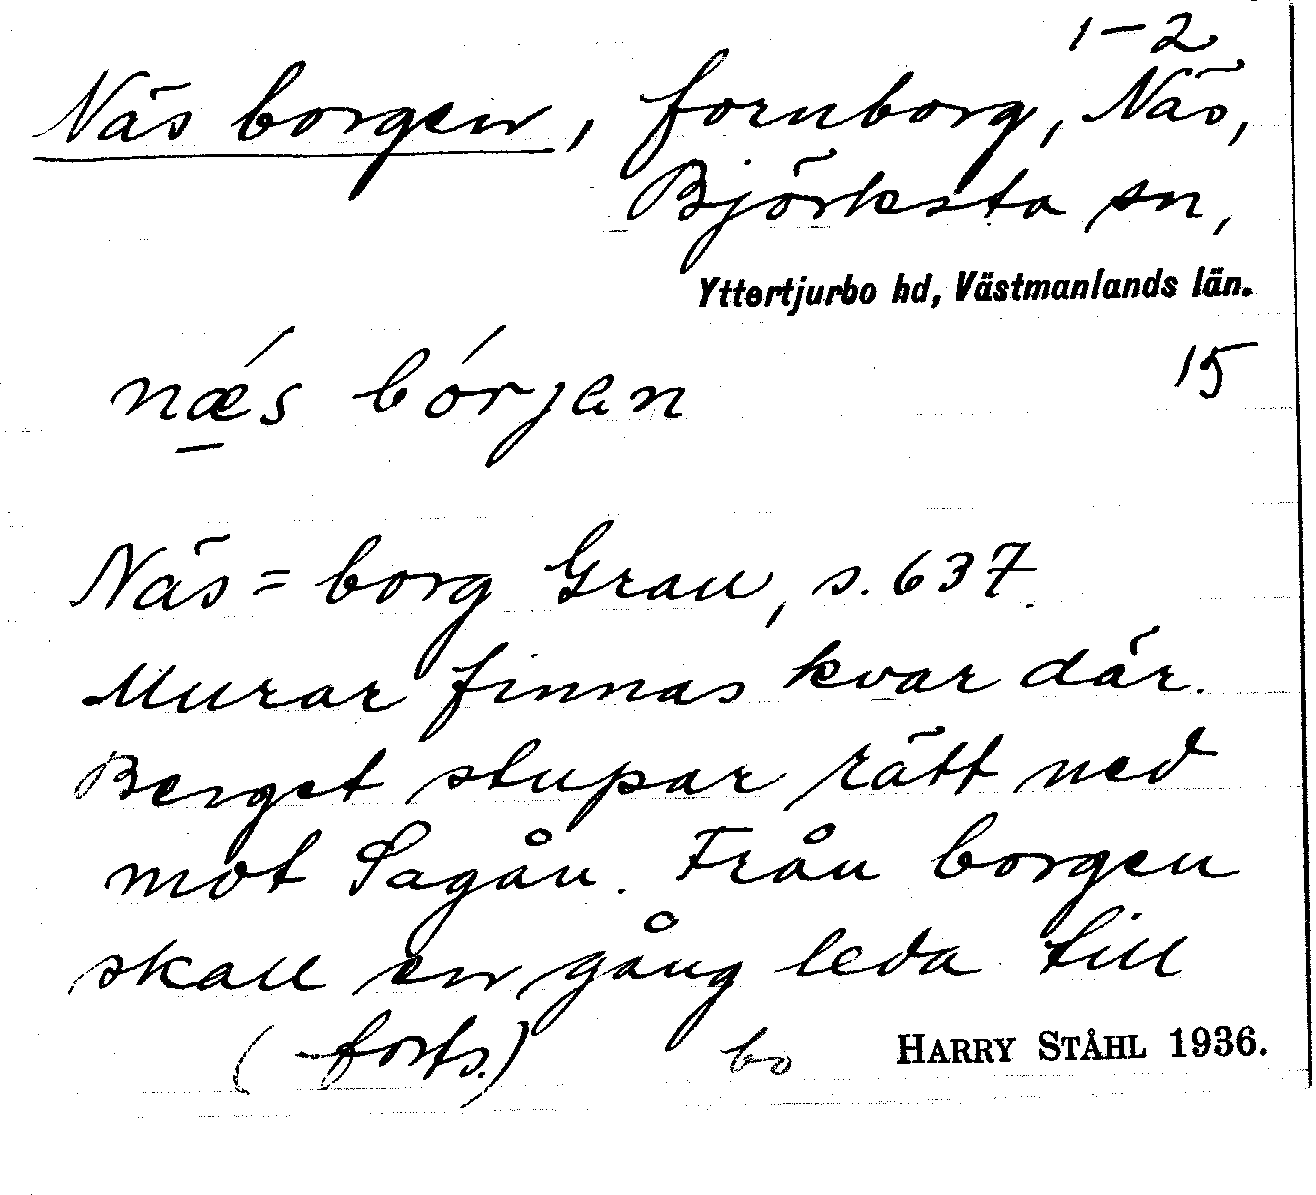 1-2
Näs borgen, fornborg, Näs,
Björksta sn,
Yttertjurbo hd, Västmanlands län.
nǽ̲s bórjan
15
Näs=borg Grau, s. 637.
Murar finnas kvar där.
Berget stupar rätt ned
mot Sagån. Från borgen
skall en gång leda till
(forts.) bo
HARRY STÅHL 1936.